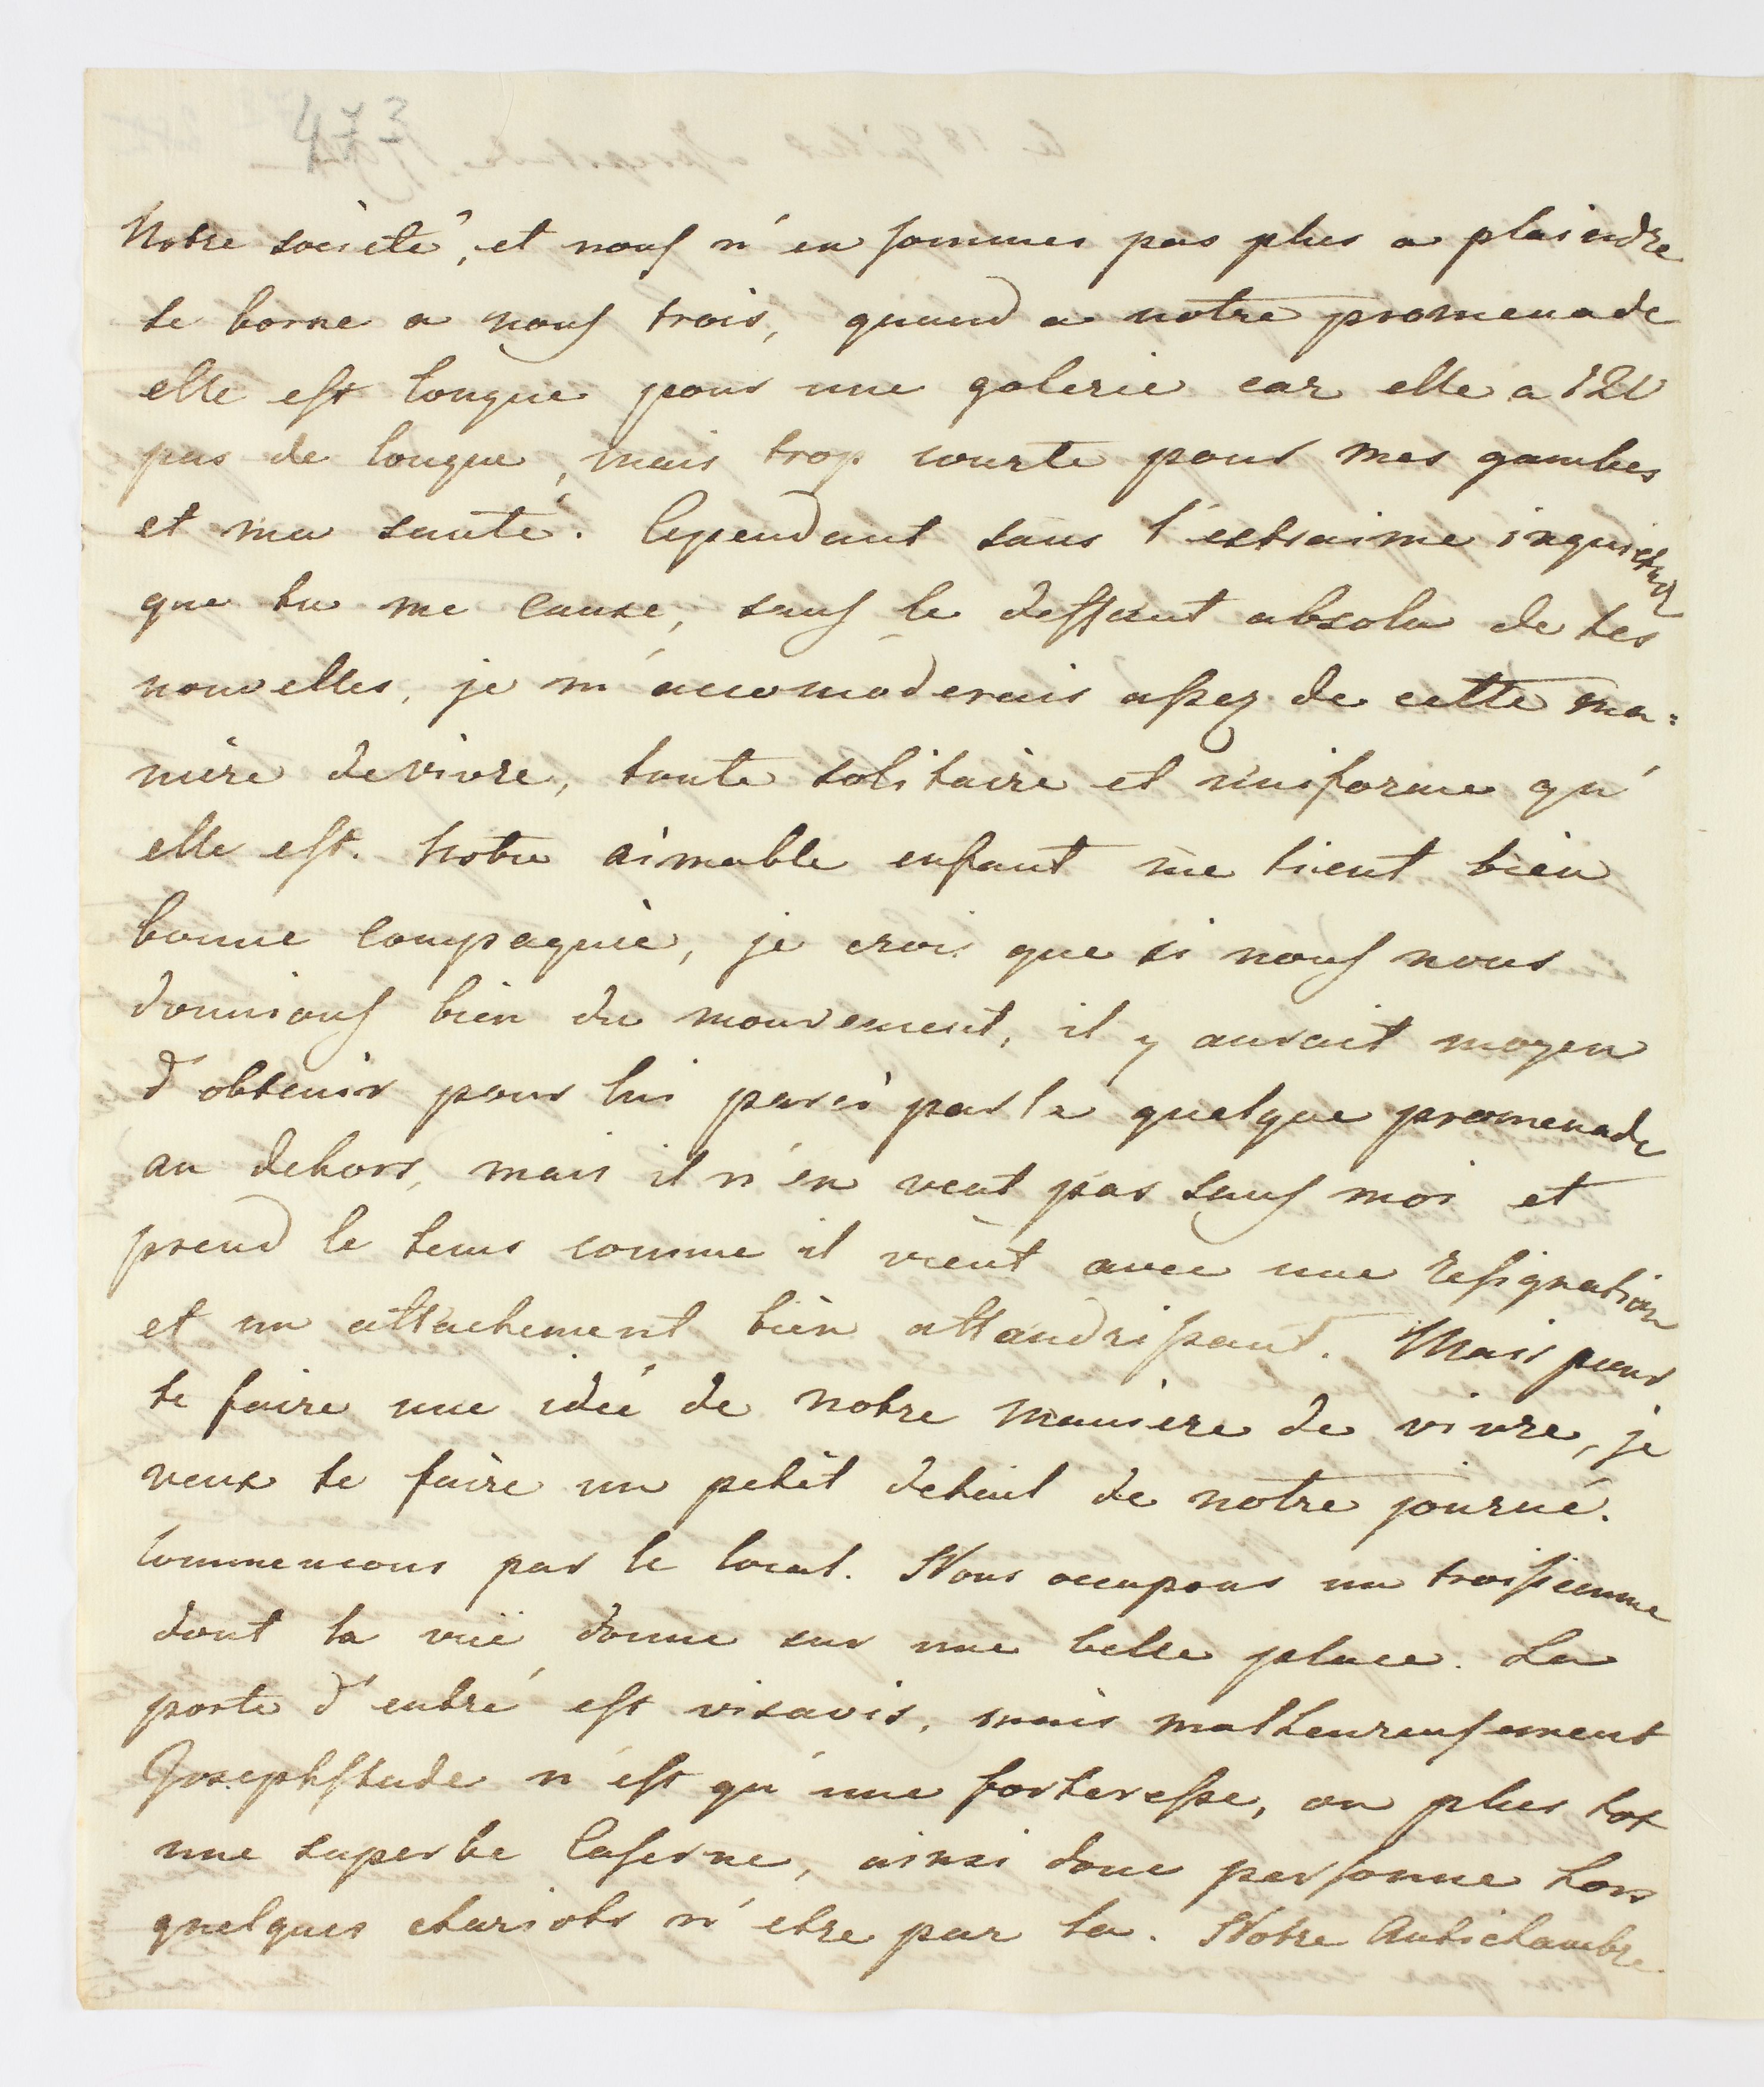 473
Notre société, et nous n'en sommes pas plus a plaindre
se borne a nous trois, quand a notre promenade
elle est longue pour une galerie car elle a 120
pas de longue, mais trop courte pour mes gambes
et ma santé. Cependant sans l'extraime inquietud
que tu me cause, sans le deffaut absolu de tes
nouvelles, je m'accomoderais assez de cette ma=
niere de vivre, toute solitaire et uniforme qu'
elle est. Notre aimable enfant me tient bien
bonne compagnie, je crois que si nous nous
donnions bien du mouvement, il y aurait moyen
d'obtenir pour lui parci parla quelque promenade
au dehors, mais il n'en veut pas sans moi et
prend le tems comme il vient avec une resignation
et un attachement bien attandrissant. Mais pour
te faire une idée de notre maniere de vivre, je
veux te faire un petit detail de notre journé.
Commencons par le local. Nous occupons un troisieme
dont la vüe donne sur une belle place. La
porte d'entré est visavis, mais malheureusement
Josephstade n'est qu'une forteresse, ou plus tot
une superbe Caserne, ainsi donc personne hors
quelques chariots n'etre par la. Notre Antichambre